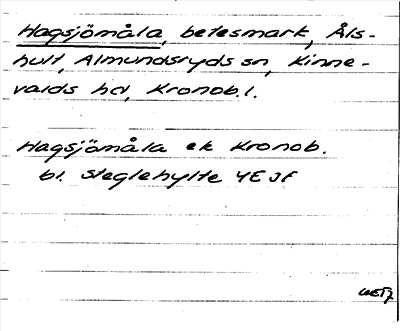 Hagsjömåla, betesmark, Åls-
hult, Almundsryds sn, Kinne-
valds hd, Kronob. l.
Hagsjömåla ek Kronob.
bl. Steglehylte 4E JF